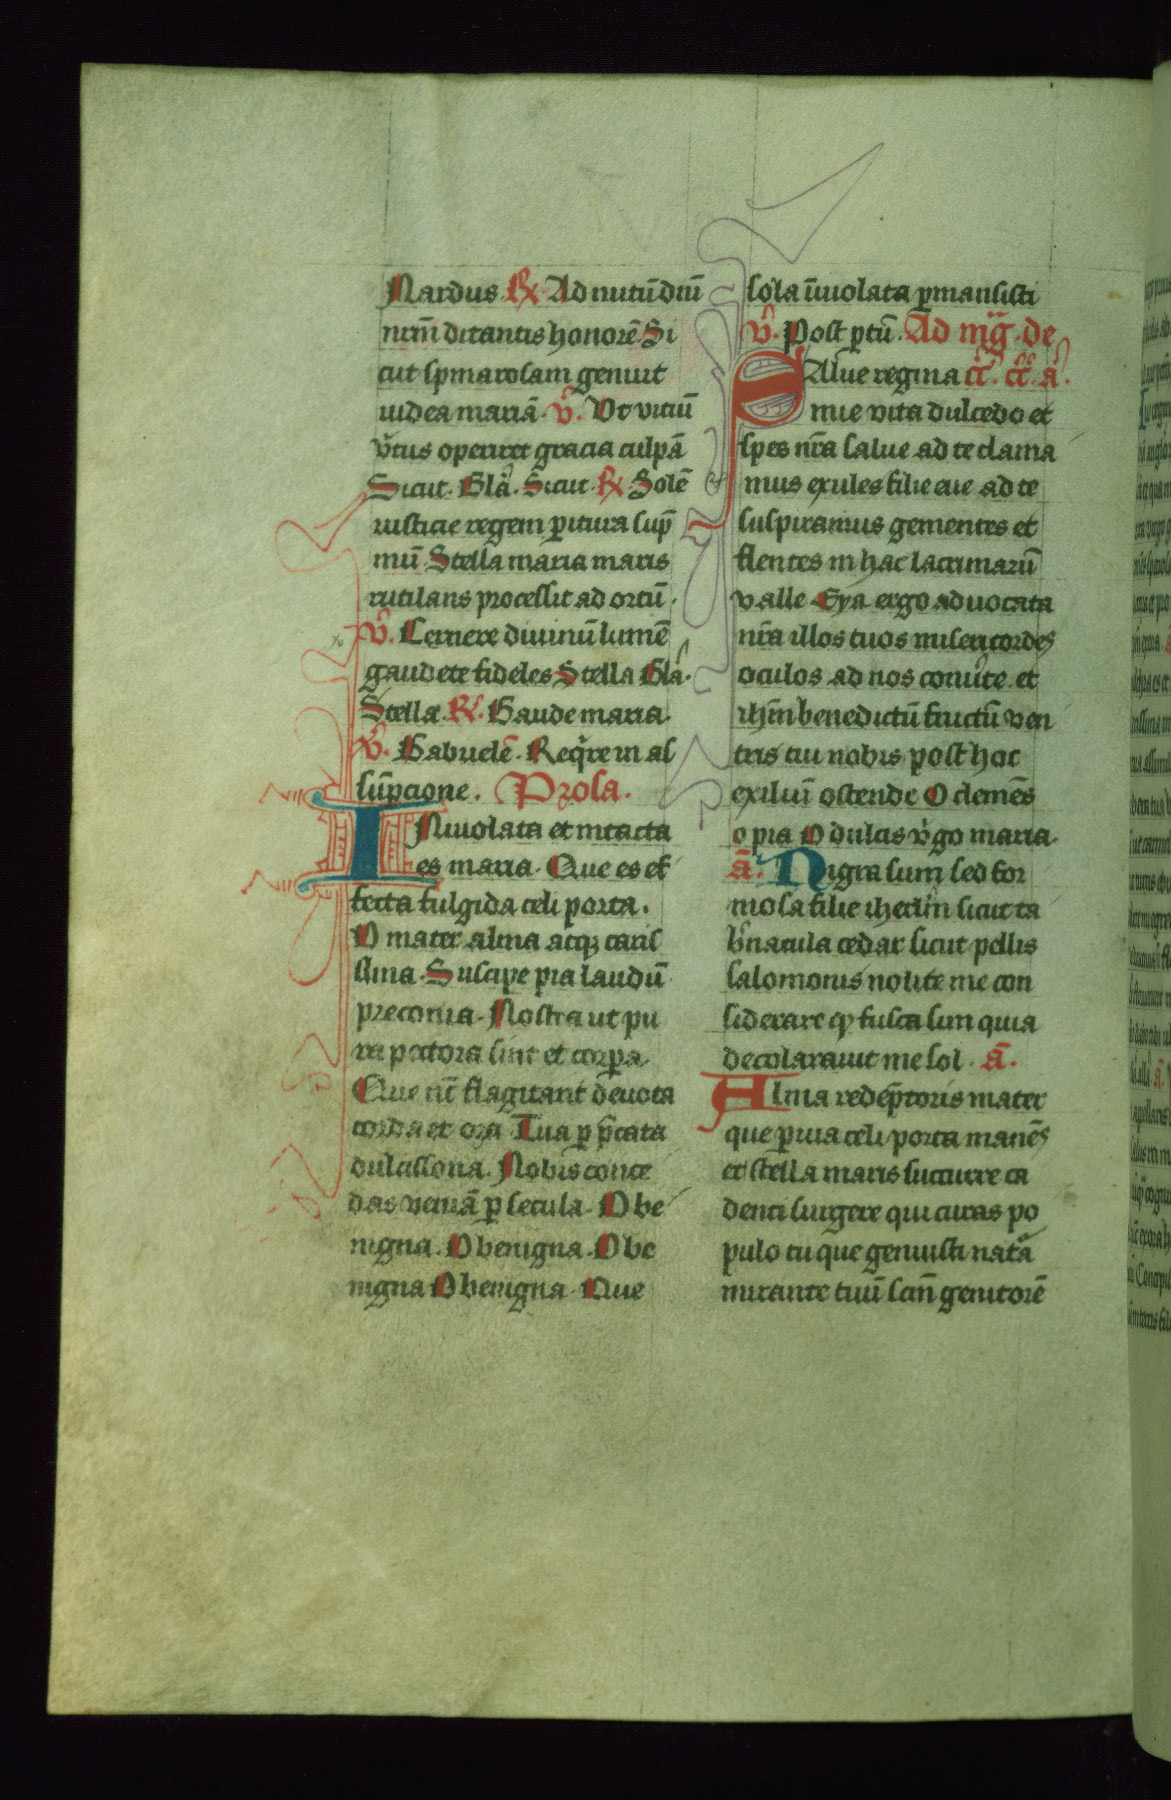 Nardus. Rx. Ad nutū dn̄i
nr̄m ditantis honorē. Si
cut spina rosam genuit
iudea mariā. v̾. Ut viciū
v̾tus operiret gracia culpā
Sicut. Glā. Sicut. Rx. Solē
iusticie regem paritura sup̄
mū. Stella maria maris
rutilans processit ad ortū.
v̾. Cernere diuinū lumē
gaudete fideles Stella Glā.
Stella. Rx. Gaude maria.
v̾. Gabrielē. Req̄re in as
sūpcione. Prosa.
INuiolata et intacta
es maria. Que es ef
fecta fulgida celi porta.
O mater alma atqꝫ caris
sima. Suscipe pia laudū
preconia. Nostra ut pu
ra pectora sint et corꝑa
Que nūc flagitant deuota
corda et ora Tua ꝑ p̄cata
dulcissona. Nobis conce
das veniā ꝑ secula. O be
nigna. O benigna. O be
nigna O benigna. Que
sola īuiolata ꝑmansisti
v̾. Post ꝑtū. Ad mḡ. de
SAlue regina
mie vita dulcedo et
spes nr̄a salue ad te clama
mus exules filie eue ad te
suspiramus gementes et
flentes in hac lacrimarū
valle Eya ergo aduocata
nr̄a illos tuos misericordes
oculos ad nos conu̾te et
ihm̄ benedictū fructū ven
tris tui nobis post hoc
exiliū ostende O clemēs
o pia O dulcis v̾go maria.
ā. Nigra sum sed for
mosa filie iherlm̄ sicut ta
b̾nacula cedar sicut pellis
salomonis nolite me con
siderare ꝙ fusca sim quia
decolarauit me sol. ā.
Alma redēptoris mater
que ꝑuia celi porta manēs
et stella maris succurre ca
denti surgere qui curas po
pulo tu que genuisti natā
mirante tuū scm̄ genitorē